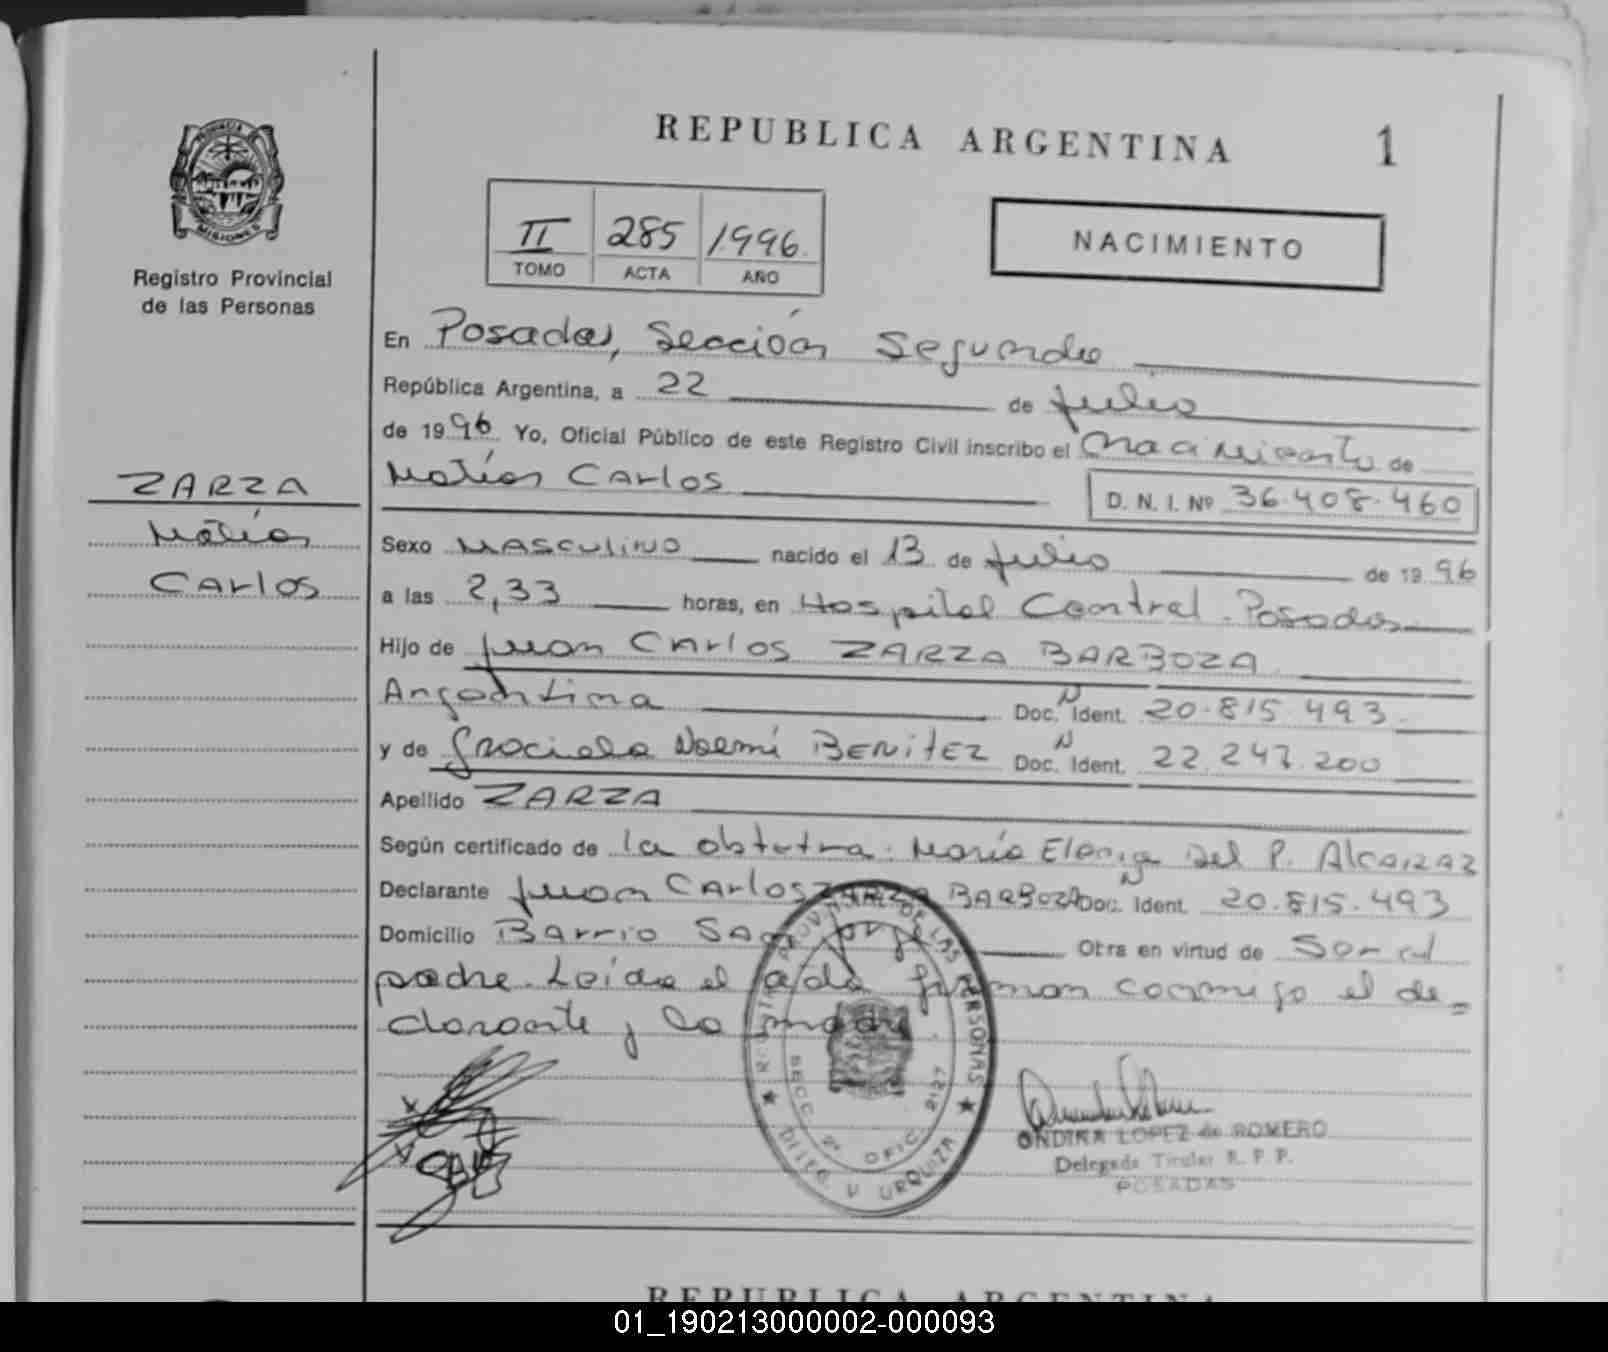 REPUBLICA ARGENTINA 1
PROVINCIA DE
MISIONES
Registro Provincial
de las Personas
II 285 1996
TOMO ACTA AÑO
NACIMIENTO
En Posadas, Sección Segunda
República Argentina, a 22 de Julio
de 1996 Yo, Oficial Público de este Registro Civil inscribo el nacimiento de
ZARZA
Matías
Carlos
Matías Carlos D. N. I. Nº 36.408.460
Sexo MASCULINO nacido el 13 de Julio de 1996
a las 2,33 horas, en Hospital Central - Posadas
Hijo de Juan Carlos ZARZA BARBOZA
Argentina Doc. N. Ident. 20.815.493
y de Graciela Noemí BENITEZ Doc. N Ident. 22.247.200
Apellido ZARZA
Según certificado de la obstetra. María del P. Alcaraz
Declarante Juan Carlos ZARZA BARBOZA Doc. N Ident. 20.815.493
Domicilio Barrio San Jorge Obra en virtud de Ser el
padre. Leída el acta firman conmigo el de=
clarante y la madre
REGISTRO PROVINCIAL DE LAS PERSONAS
SECC. 2ª OFIC. 2127
V URQUIZA
ONDINA LOPEZ de ROMERO
Delegada Titular R. P. P.
POSADAS
REPUBLICA ARGENTINA
01_190213000002-000093